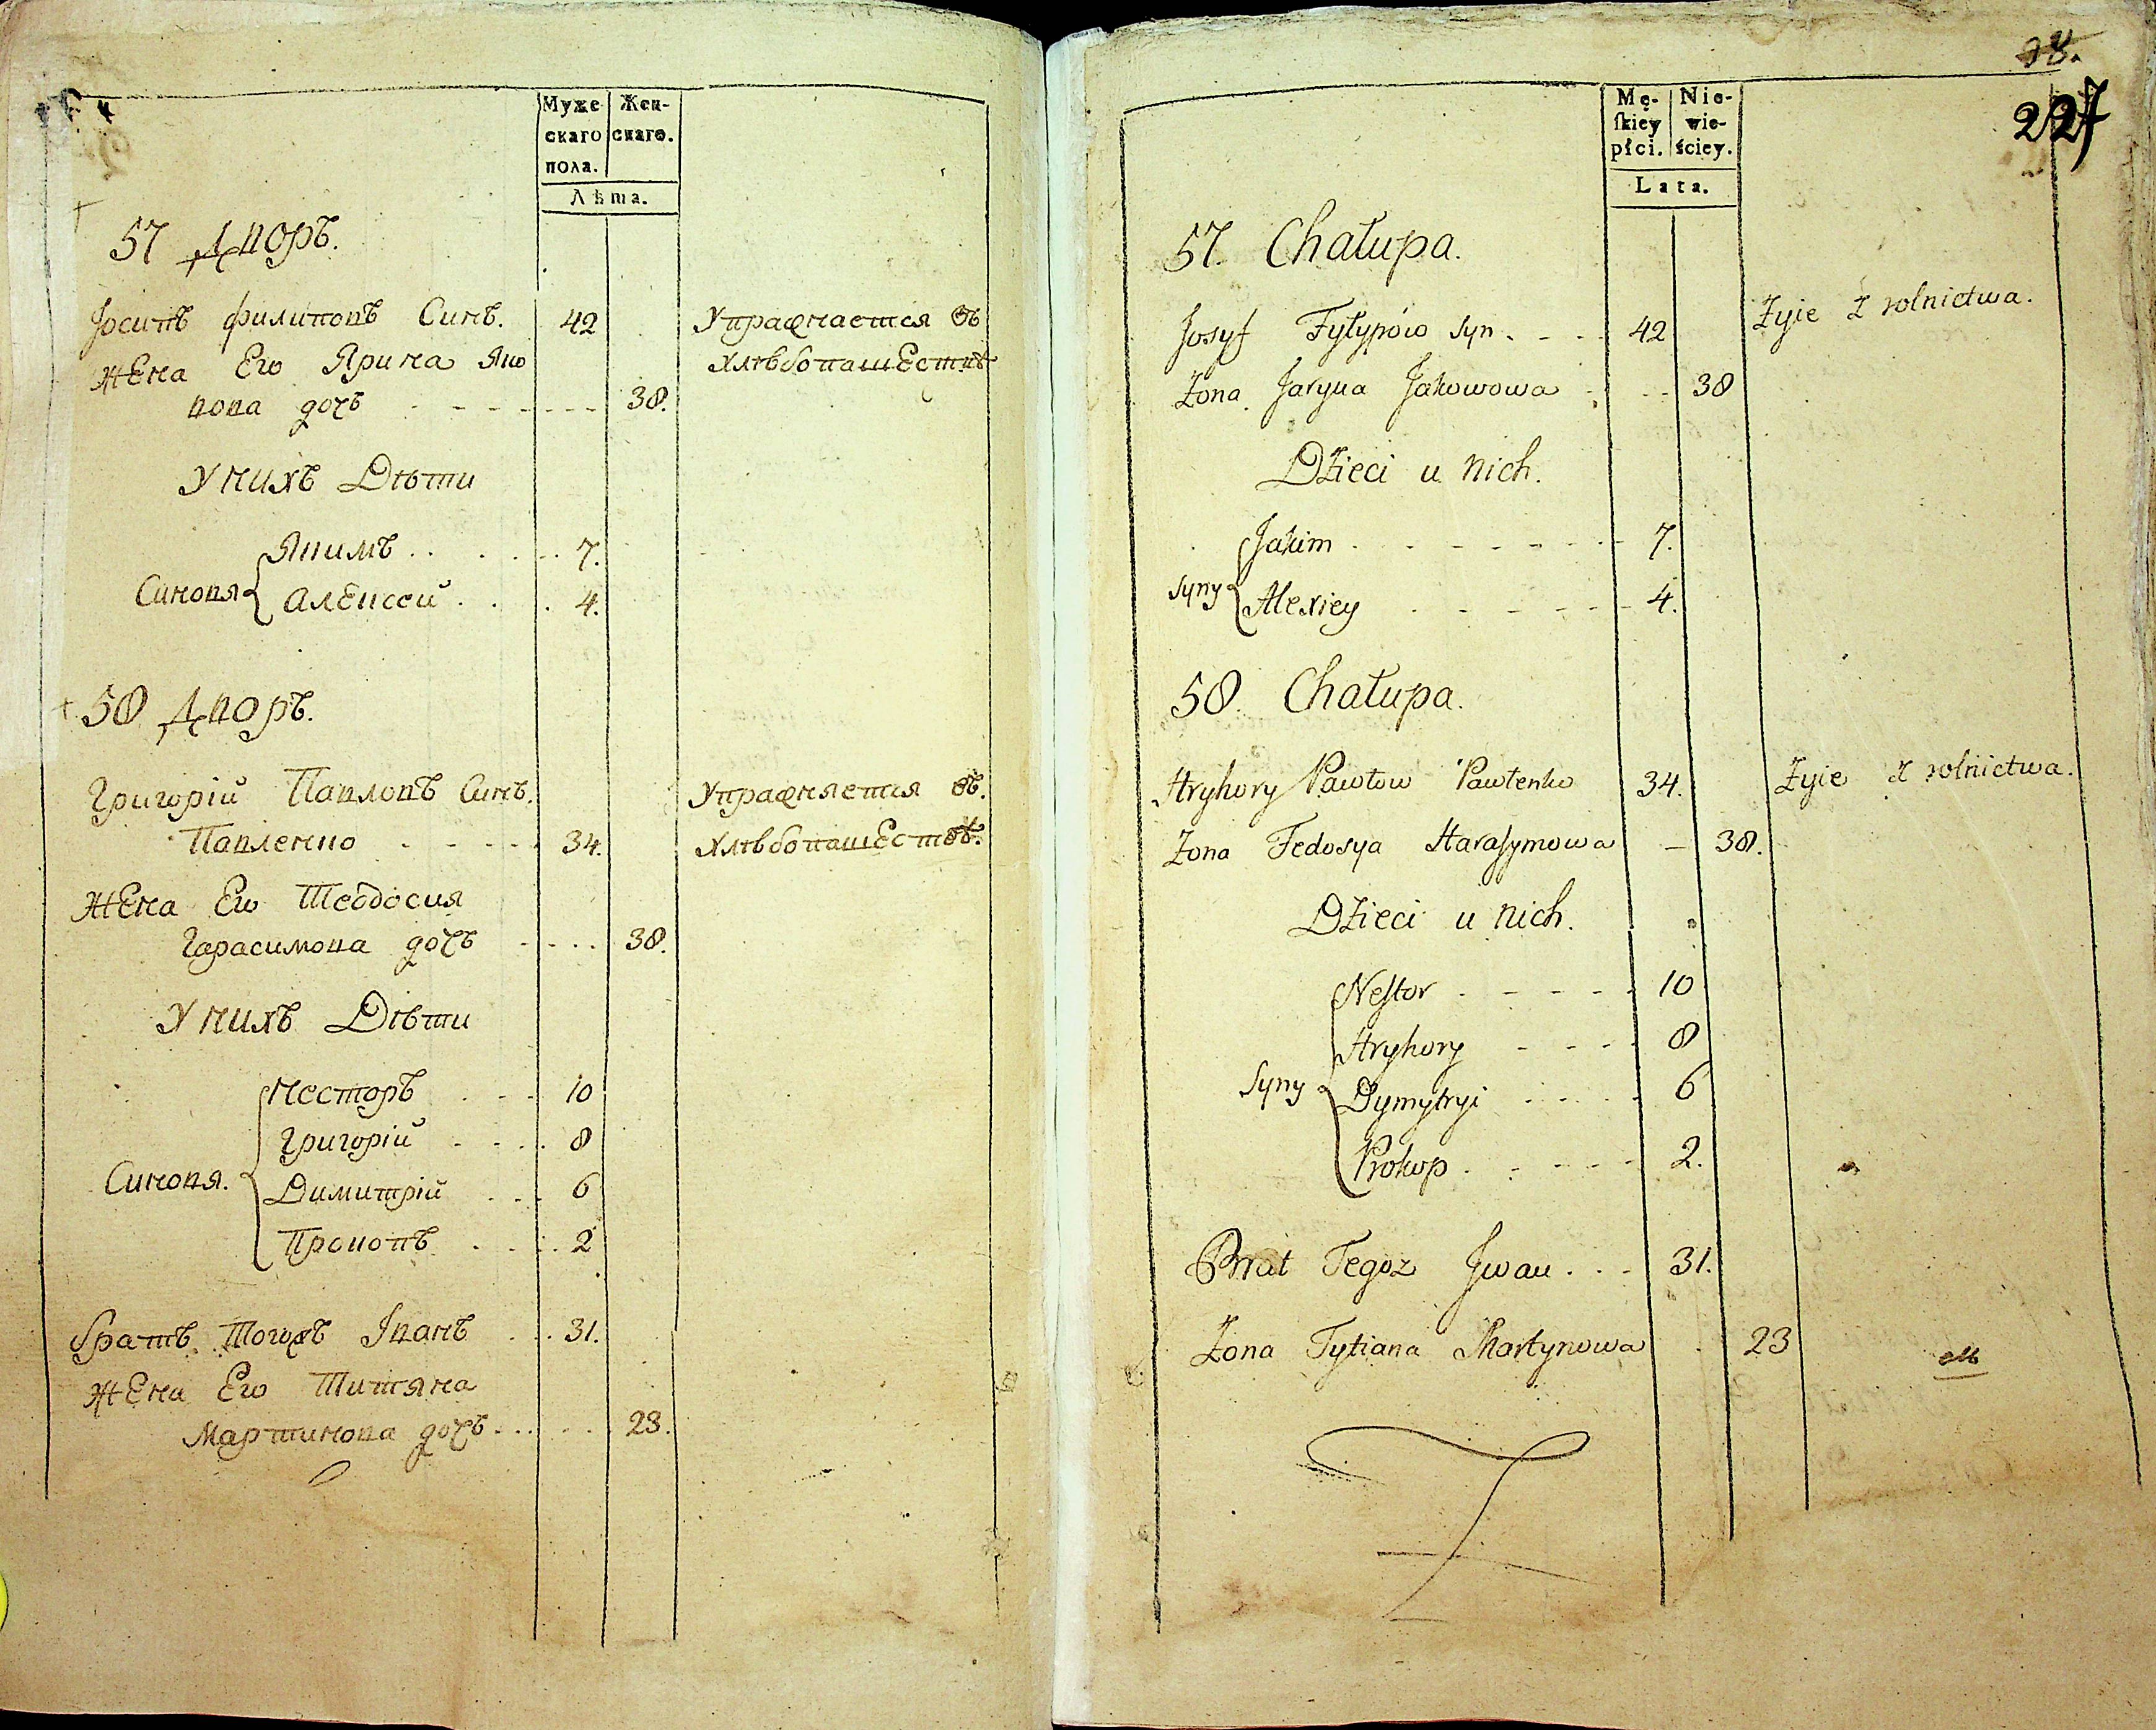 Муже
скаго
пола.
Жен-
скаго.
Лѣта.
57 Дворъ.
Іосипъ Филиповъ Синъ. 42 Упражнается въ
Жена Его Ярина Яко хлѣбопашествѣ
вова дочъ - - - - - - - 38.
У нихъ Дѣти
Синовя
Якимъ . . . . . 7.
Алексей . . . 4.
58 Дворъ.
Григорій Павловъ Синъ. Упражняется въ.
Павленко - - - - 34. хлѣбопашествѣ.
Жена Его Теодосия
Гарасимова дочъ - - . . 38.
У нихъ Дѣти
Синовя.
Несторъ . - - 10
Григорій - - - . 8
Димитрій . . . 6
Прокопъ . . . . 2
Братъ Тогожъ Іванъ . . . 31.
Жена Его Титяна
Мартинова дочъ . . . . . . 23.
98.
227
Mę-
ſkiey
płci.
Nie-
wie-
ściey.
Lata.
57. Chałupa.
Josyf Fyłypów syn . - - - 42 Żyie z rolnictwa.
Żona Jaryna Jakowowa - - - 38
Dzieci u nich.
Syny
Jakim . - - - - - - - 7.
Alexiey . - - - - - 4.
58. Chałupa.
Hryhory Pawłow Pawlenko 34. Żyie z rolnictwa.
Żona Fedosya Haraſymowa - 38.
Dzieci u nich.
Syny
Neſtor . - - - - - 10
Hryhory - - - - 8
Dymytryi . . . . . 6
Prokop . - - - - - 2.
Brat Tegoż Jwan . . - 31.
Żona Tytiana Martynowa . 23